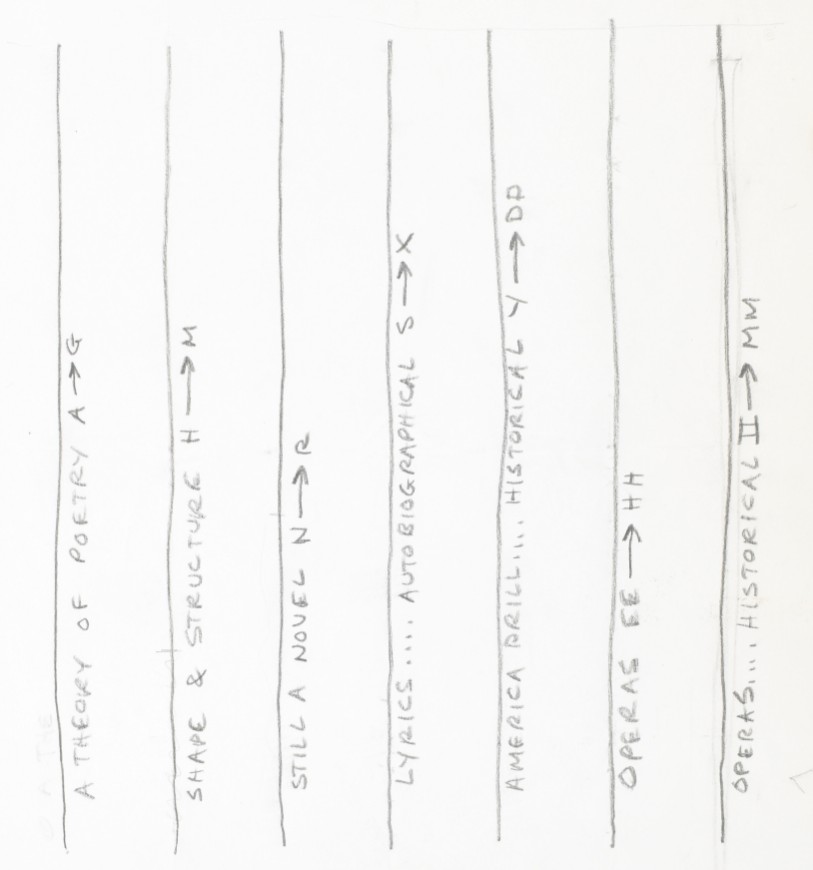 A THEORY OF POETRY A→G
SHAPE & STRUCTURE H→M
STILL A NOVEL N→R
LYRICS.... AUTOBIOGRAPHICAL S→X
AMERICA DRILL.... HISTORICAL Y→DD
OPERAS EE→HH
OPERAS.... HISTORICAL II→MM